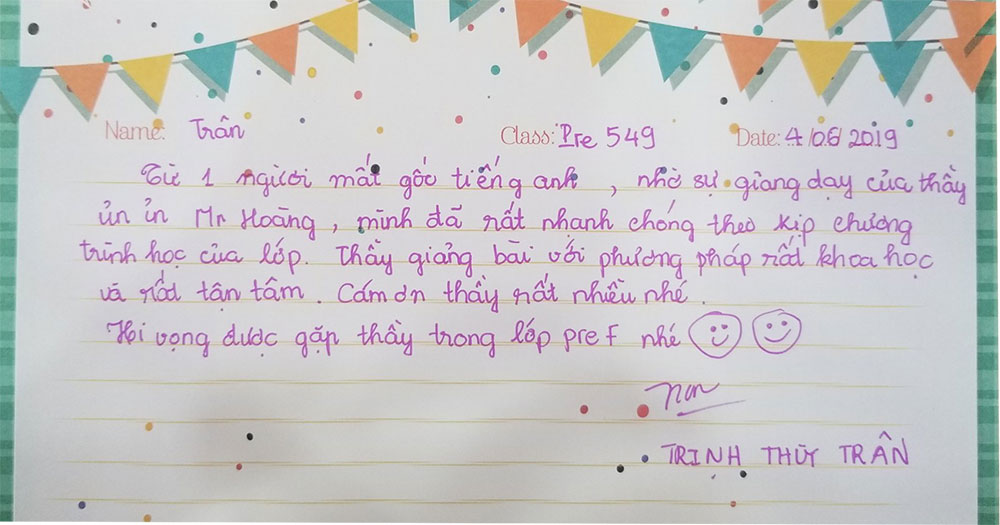 Name: Trân Class: Pre 549 Date: 4/06/2019
Từ 1 người mất gốc tiếng anh, nhờ sự giảng dạy của thầy
ủn ỉn Mr Hoàng, mình đã rất nhanh chóng theo kịp chương
trình học của lớp. Thầy giảng bài với phương pháp rất khoa học
và rất tận tâm. Cám ơn thầy rất nhiều nhé.
Hi vọng được gặp thầy trong lớp pre f nhé
TRỊNH THÙY TRÂN